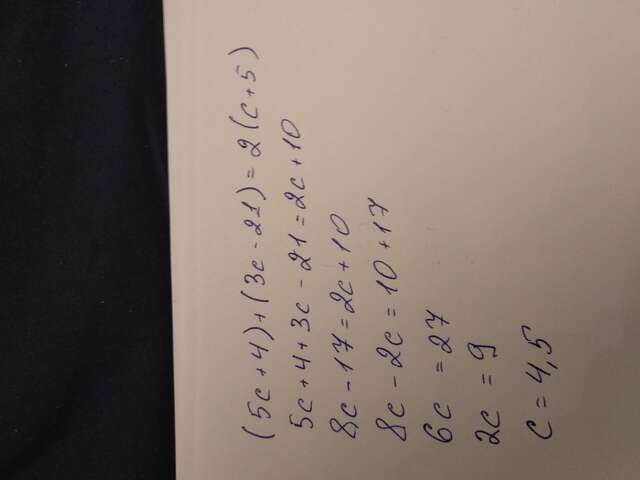 (5c+4)+(3c-21)=2(c+5)
5c+4+3c-21=2c+10
8c-17=2c+10
8c-2c=10+17
6c=27
2c=9
c=4,5